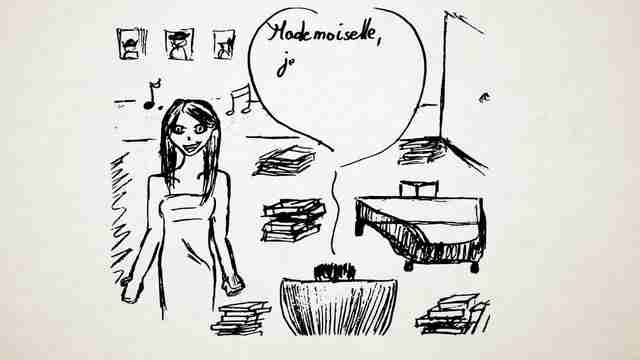 Mademoiselle,
je